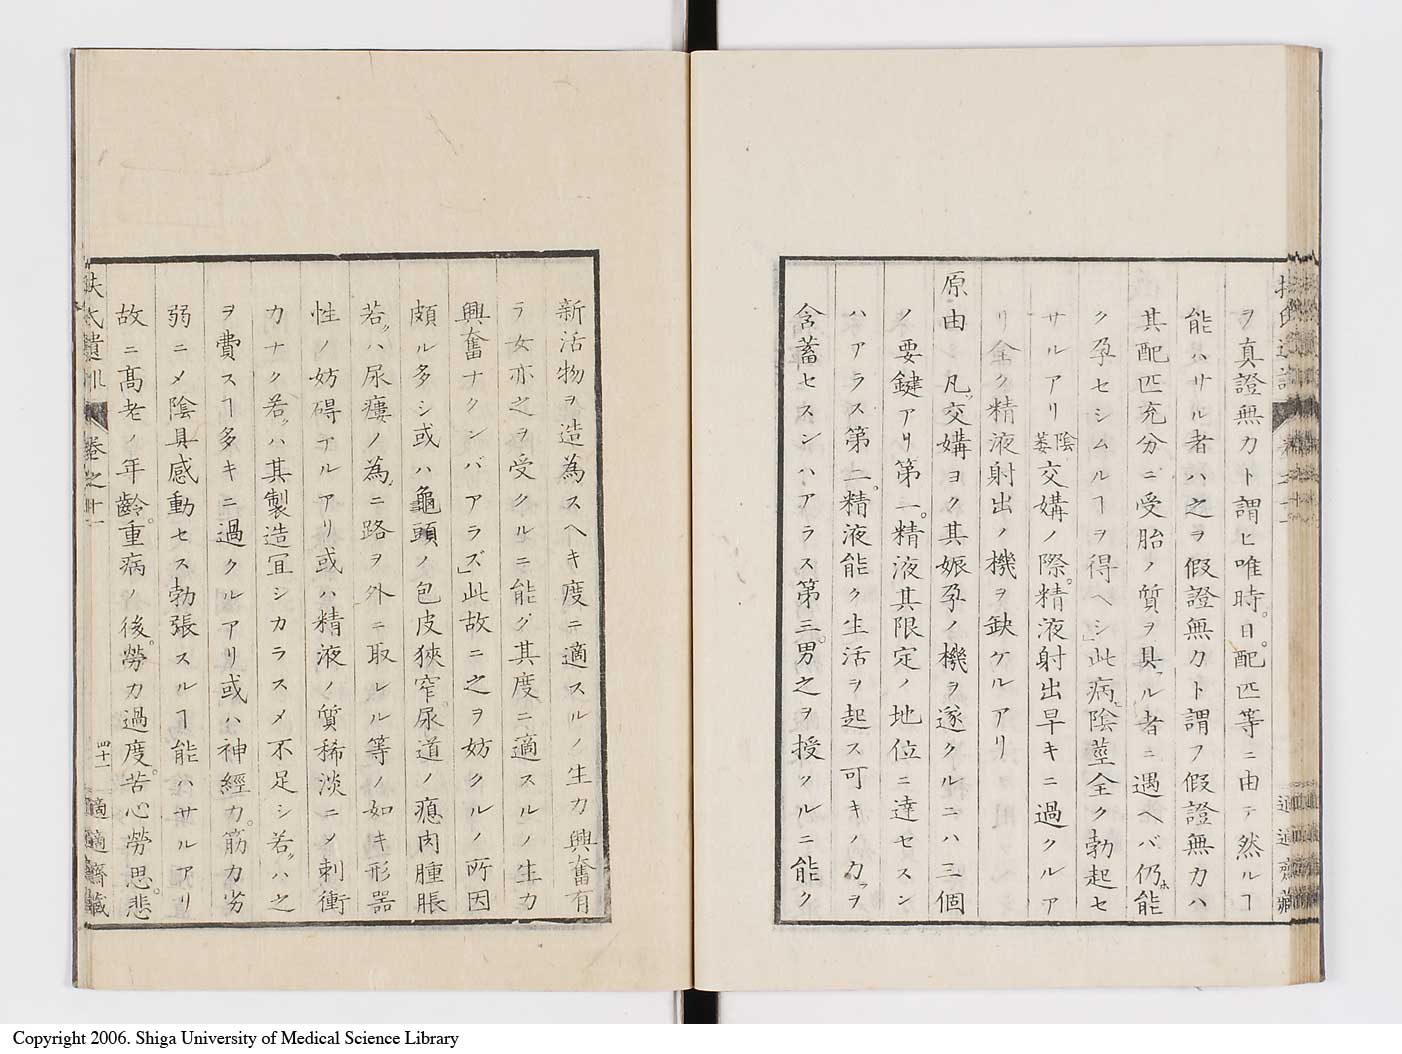 ヲ真證無力ト謂ヒ唯時。日。配匹等ニ由テ然ルヿ
能ハサル者ハ之ヲ假證無力ト謂フ假證無力ハ
其配匹充分ニ受胎ノ質ヲ具フル者ニ遇ヘバ仍ホ能
ク孕セシムルヿヲ得ヘシ」此病陰莖全ク勃起セ
サルアリ陰萎交媾ノ際。精液射出早キニ過クルア
リ全ク精液射出ノ機ヲ缺ケルアリ
原由 凡ソ交媾ヨク其娠孕ノ機ヲ遂クルニハ三個
ノ要鍵アリ第一。精液其限定ノ地位ニ達セスン
ハアラス第二。精液能ク生活ヲ起ス可キノ力ヲ
含蓄セスンハアラス第三。男之ヲ授クルニ能ク
新活物ヲ造為スヘキ度ニ適スルノ生力興奮有
ラ女亦之ヲ受クルニ能ク其度ニ適スルノ生力
興奮ナクンバアラズ」此故ニ之ヲ妨クルノ所因
頗ル多シ或ハ龜頭ノ包皮狹窄。尿道ノ瘜肉腫脹
若クハ尿瘻ノ為ニ路ヲ外ニ取ルル等ノ如キ形器
性ノ妨碍アルアリ或ハ精液ノ質稀淡ニメ刺衝
力ナク若クハ其製造宜シカラスメ不足シ若クハ之
ヲ費スヿ多キニ過クルアリ或ハ神經力。筋力劣
弱ニメ陰具感動セス勃張スルヿ能ハサルアリ
故ニ高老ノ年齡。重病ノ後。勞力過度。苦心勞思。悲
扶氏遺訓 卷之十一
四十一
適適齋藏